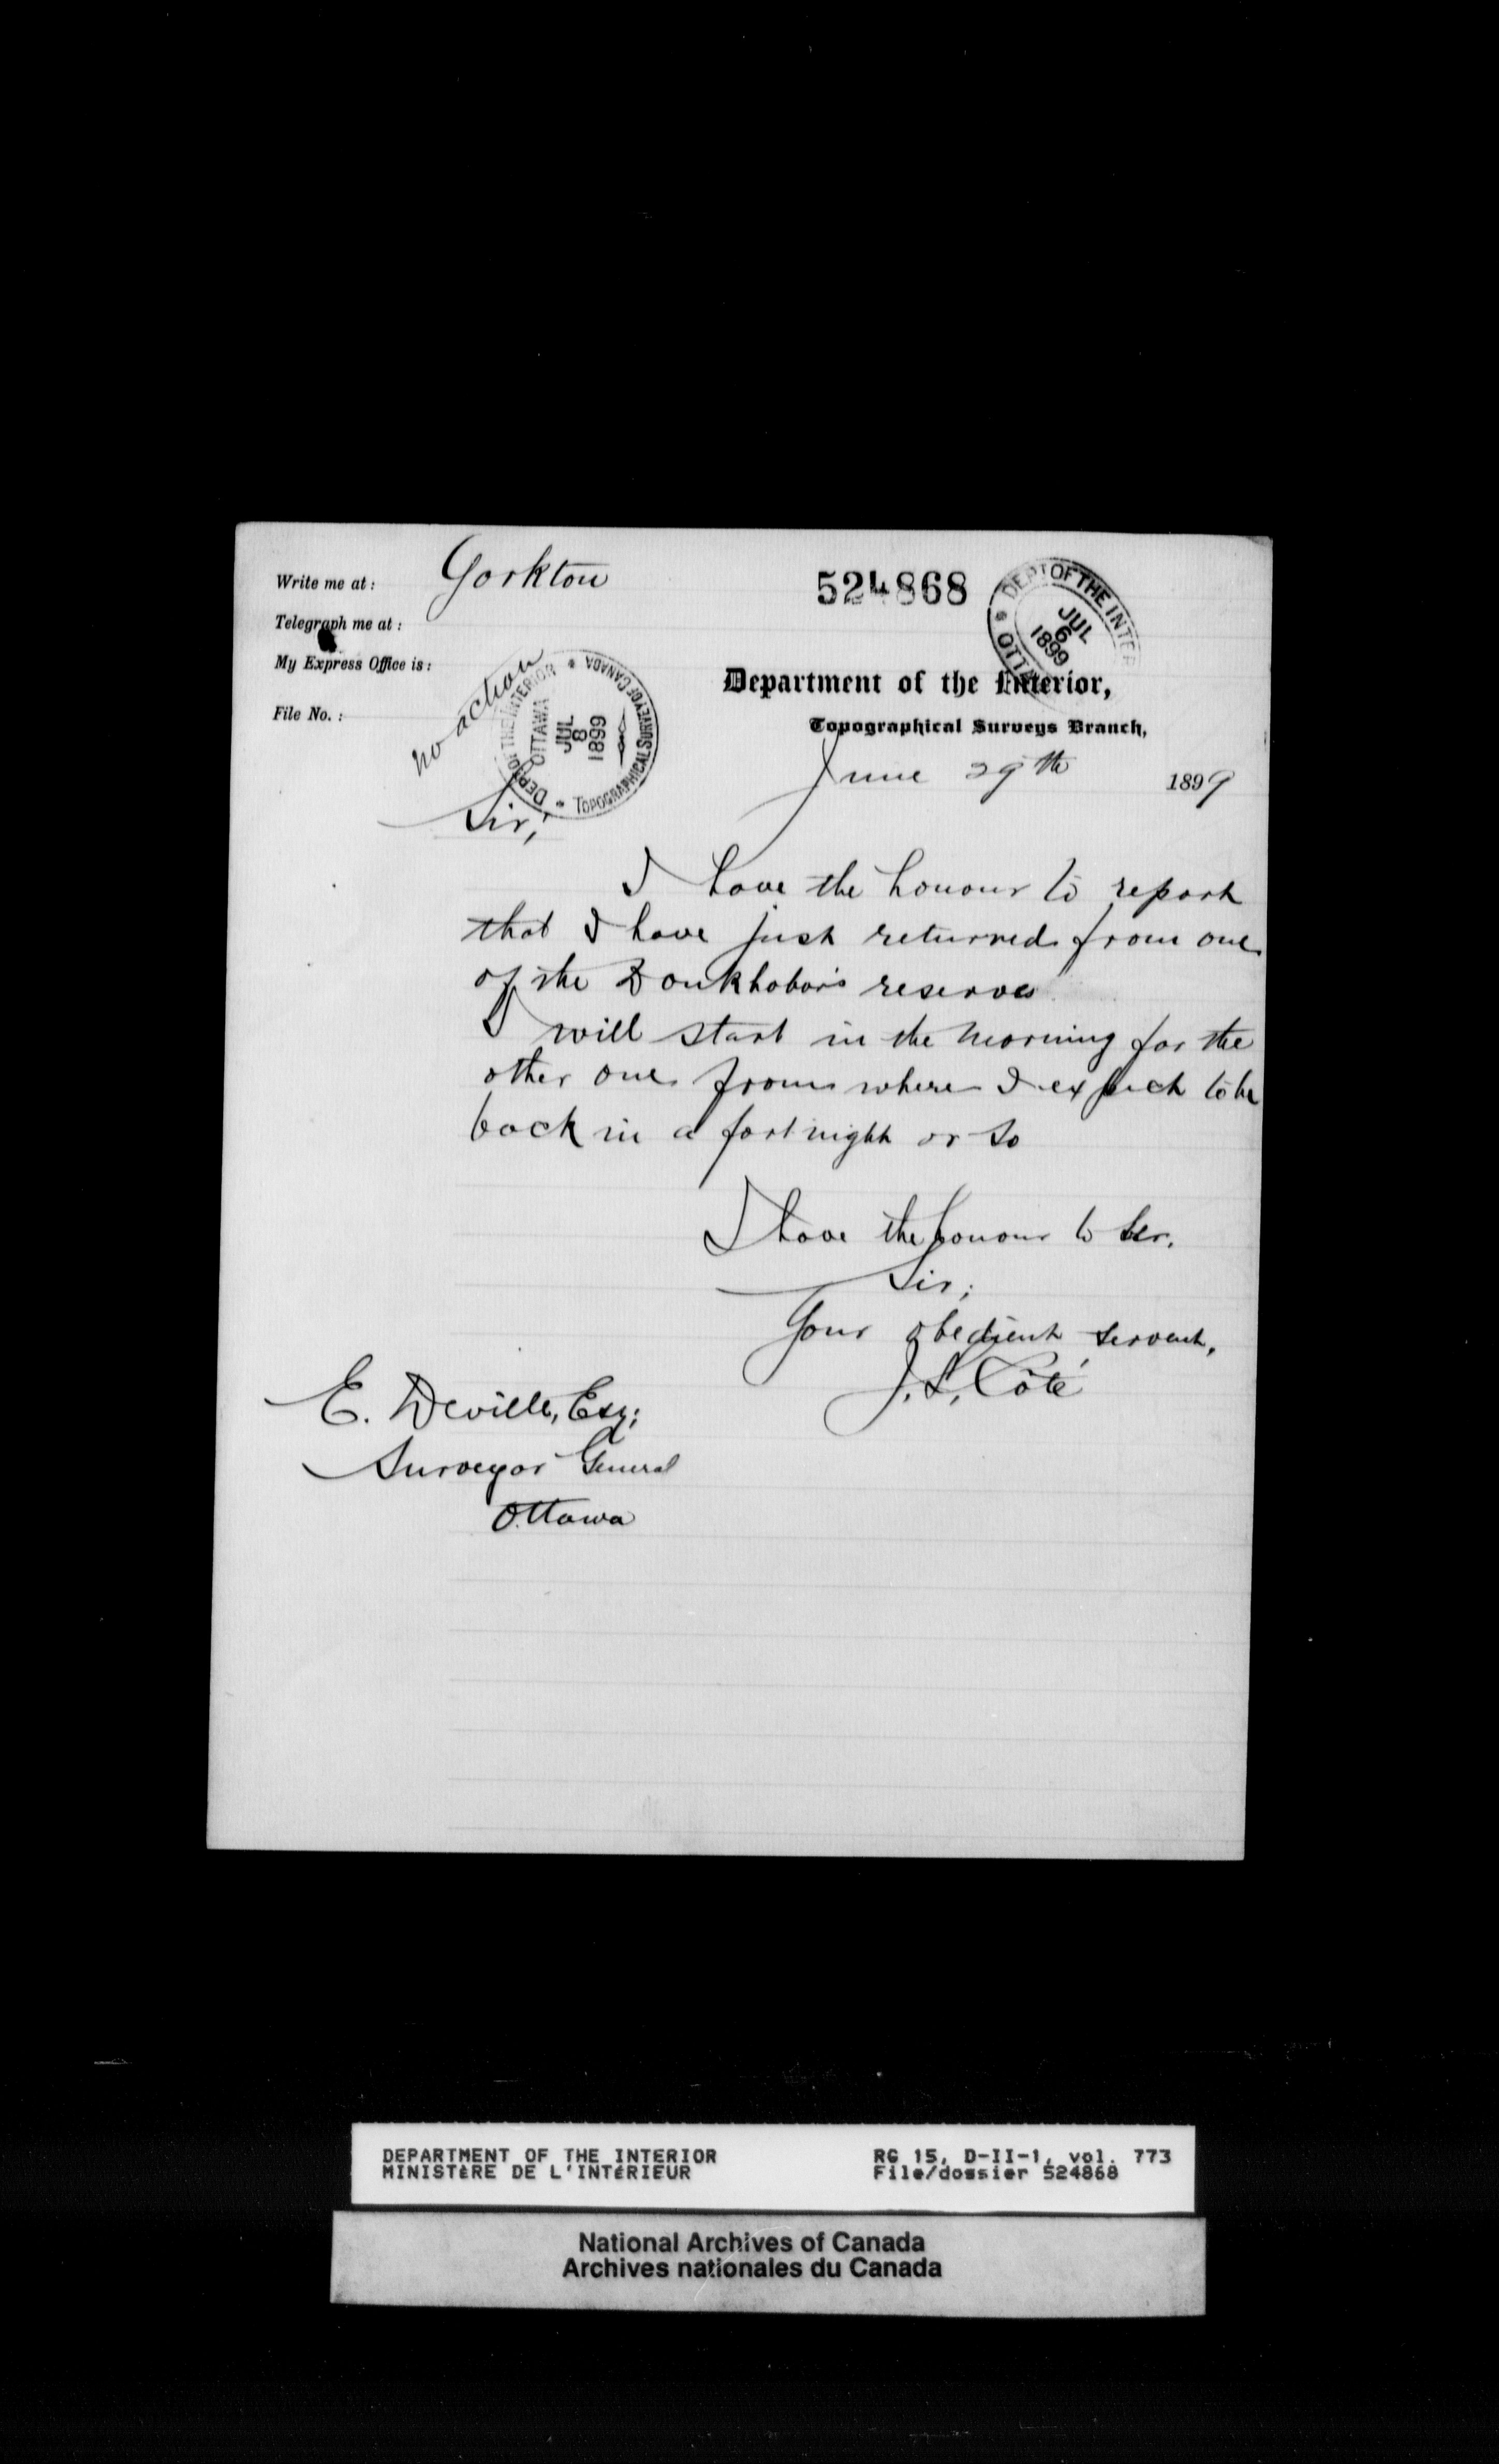 Write me at: Yorkton
Telegraph me at:
My Express Office is:
File No. :
no action
524868
DEPT OF THE INTERIOR OTTAWA
JUL
6
1899
DEPT OF THE INTERIOR * TOPOGRAPHICAL SURVEY OF CANADA *
OTTAWA
JUL
8
1899
Department of the Interior,
Topographical Surveys Branch,
June 29th 1899
Sir;
I have the honour to report
that I have just returned from one
of the Doukhobors reserves
I will start in the morning for the
other one from where I expect to be
back in a fortnight or so
I have the honour to be.
Sir;
Your obedient servant,
J. L. Coté
E. Deville, Esq;
Surveyor General
Ottawa
DEPARTMENT OF THE INTERIOR
MINISTÈRE DE L'INTÉRIEUR
RG 15, D-II-1, vol. 773
File/dossier 524868
National Archives of Canada
Archives nationales du Canada